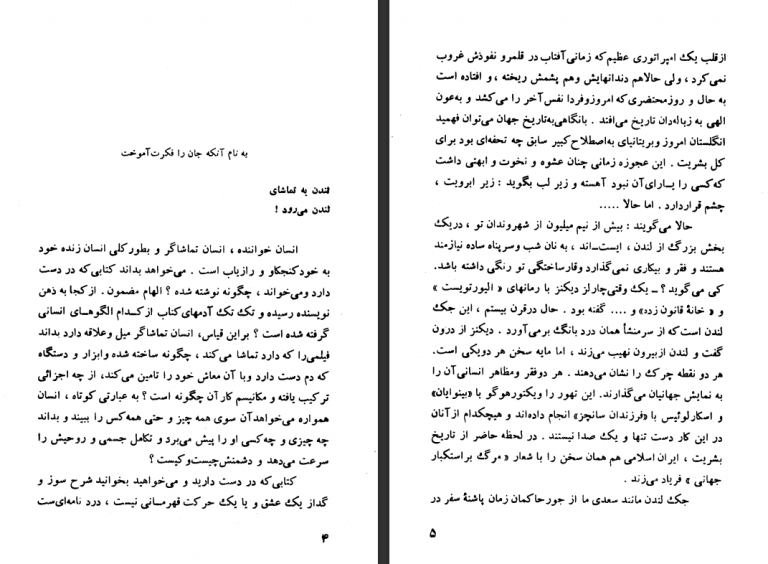 به نام آنکه جان را فکرت آموخت
لندن به تماشای
لندن می‌رود !
انسان خواننده ، انسان تماشاگر و بطور کلی انسان زنده خود
به خود کنجکاو و رازیاب است . می‌خواهد بداند کتابی‌که در دست
دارد ومی‌خواند ، چگونه نوشته شده ؟ الهام مضمون . ازکجا به ذهن
نویسنده رسیده و تک تک آدمهای‌کتاب ازکدام الگوهـای انسانی
گرفته شده است ؟ براین قیاس، انسان تماشاگر میل وعلاقه دارد بداند
فیلمی‌را که دارد تماشا می‌کند ، چگونه ساخته شده وابزار و دستگاه
که دم دست دارد وبا آن معاش خود را تامین می‌کند، از چه اجزائی
ترکیب یافته و مکانیسم کار آن چگونه است ؟ به عبارتی کوتاه ، انسان
همواره می‌خواهد آن سوی همه چیز و حتی همه‌کس را ببیند و بداند
چه چیزی و چه‌کسی او را پیش می‌برد و تکامل جسمی و روحیش را
سرعت می‌دهد و دشمنش‌چیست‌وکیست ؟
کتابی‌که در دست دارید و می‌خواهید بخوانید شرح سوز و
گداز یک عشق و یا یک حرکت قهرمـانی نیست ، درد نامه‌ای‌ست
۴
ازقلب یک امپراتوری عظیم‌که زمانی‌آفتاب در قلمرو نفوذش غروب
نمی‌کرد ، ولی حالاهم دندانهایش وهم پشمش ریخته ، و افتاده است
به حال و روزمحتضری‌که امروزوفردا نفس آخر را می‌کشد و به‌عون
الهی به زباله‌دان تاریخ می‌افتد . بانگاهی‌به‌تاریخ جهان می‌توان فهمید
انگلستان امروز وبریتانیای به‌اصطلاح کبیر سابق چه تحفه‌ای بود برای
کل بشریت . این عجوزه زمانی چنان عشوه و نخوت و ابهتی داشت
که‌کسی را یـارای‌آن نبود آهسته و زیر لب بگوید : زیر ابرویت ،
چشم قراردارد . اما حالا .....
حالا می‌گویند : بیش از نیم میلیون از شهروندان تو ، دریک
بخش بزرگ از لندن ، ایست‌ـاند ، به نان شب وسرپناه ساده نیازمند
هستند و فقر و بیکاری نمی‌گذارد وقارساختگی تو رنگی داشته باشد.
کی می‌گوید ؟ ـ یک وقتی‌چارلز دیکنز با رمانهای « الیورتویست »
و « خانهٔ قانون زده» و .... گفته بود . حال درقرن بیستم ، این جک
لندن است‌که از سرمنشأ همان درد بانگ برمی‌آورد . دیکنز از درون
گفت و لندن ازبیرون نهیب می‌زند ، اما مایه سخن هر دویکی است.
هر دو نقطه چرک را نشان می‌دهند . هر دوفقر ومظاهر انسانی‌آن را
به نمایش جهانیان می‌گذارند. این تهور را ویکتورهوگو با «بینوایان»
و اسکارلوئیس با «فرزندان سانچز» انجام داده‌اند و هیچکدام ازآنان
در این کار دست تنها و یک صدا نیستند . در لحظه حاضر از تاریخ
بشریت ، ایران اسلامی هم همان سخن را با شعار « مرگ براستکبار
جهانی » فریاد می‌زند .
جک لندن مانند سعدی ما از جورحاکمان زمان پاشنهٔ سفر در
۵